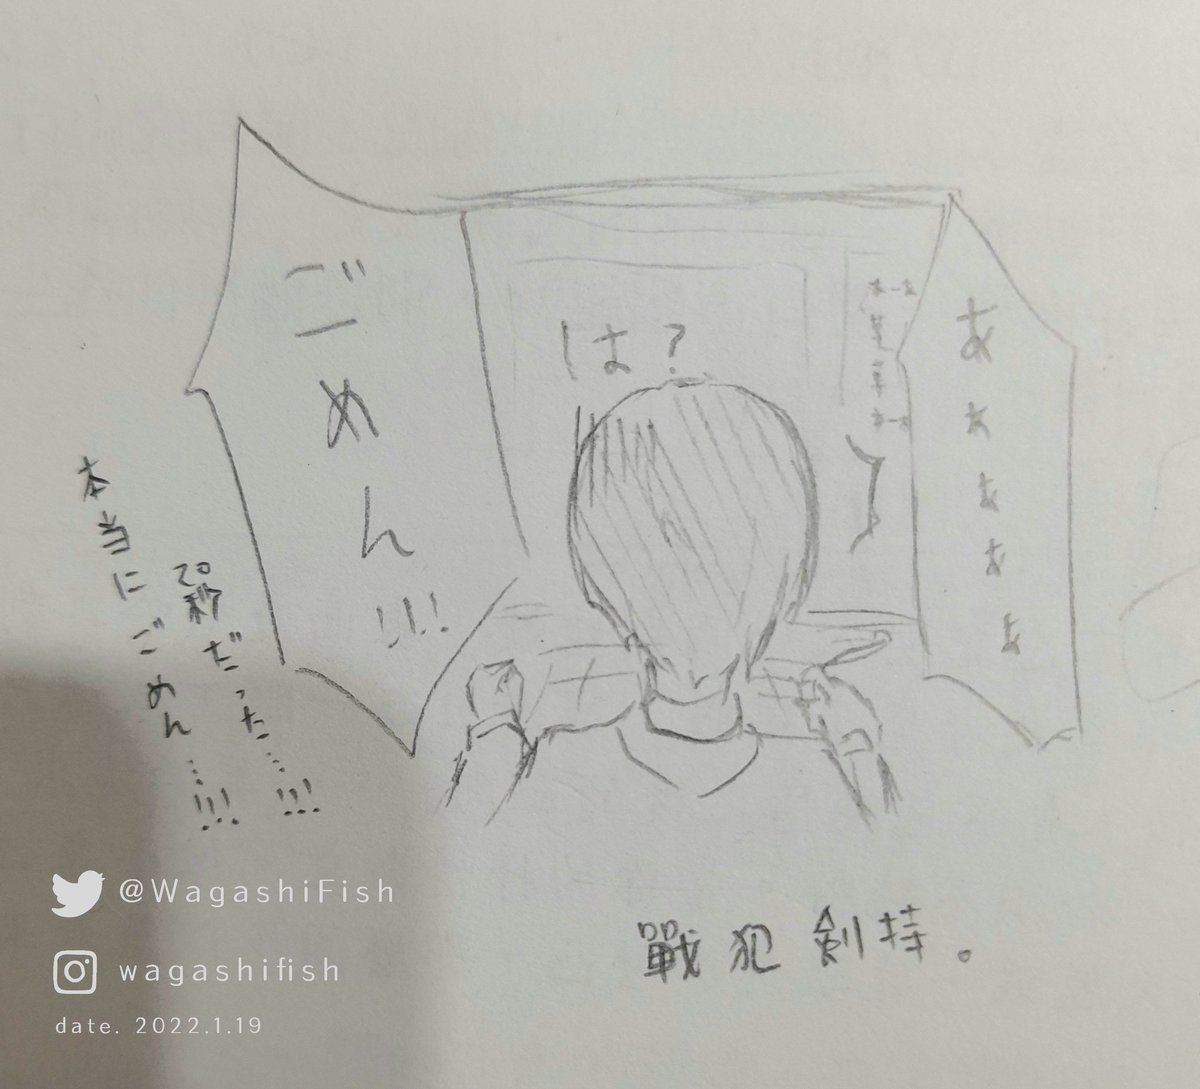 あぁぁぁぁ
は？
ごーめん!!!
20秒だった…!!!
本当にごめん…!!!
戰犯 剣持。
@WagashiFish
wagashifish
date. 2022.1.19